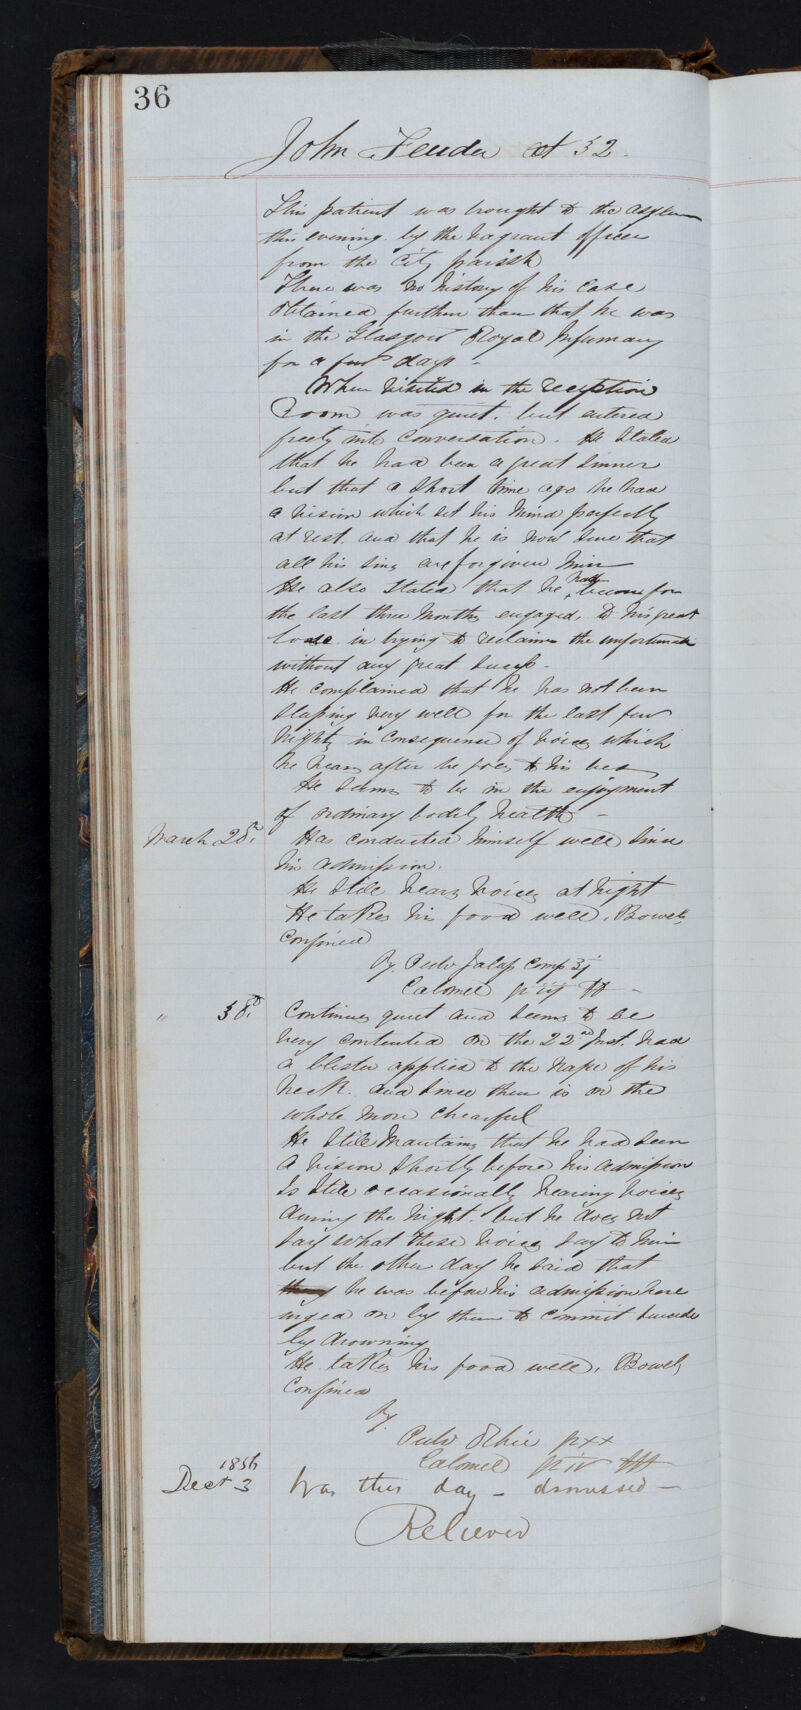 36
John Fender æt 52.
This patient was brought to the asylum
this evening by the vagrant officer
from the City parish
There was no history of his case
obtained further than that he was
in the Glasgow Royal Infirmary
for a few days -
When visited in the reception
Room was quiet, but entered
freely into conversation. He stated
that he had been a great sinner
but that a short time ago he had
a vision which set his mind perfectly
at rest. and that he is now sure that
all his sins are forgiven him
He also stated that he hath become for
the last three months engaged, to his great
in trying to reclaim the unfortunate
without any great success -
He complained that he has not been
sleeping very well for the last few
nights in consequence of voices which
he hears after he goes to his bed
He seems to be in the enjoyment
of ordinary bodily health -
March 20th. Has conducted himself well since
his admission.
He still hears voices at night
He takes his food well, Bowels
confined
Rx Pulv Jalap Comp ʒj
Calomel gr
" 30th. Continues quiet and seems to be
very contented on the 22nd Inst. had
a blister applied to the nape of his
neck. and since then is on the
whole more chearful
He still maintains that he had seen
a vision shortly before his admission
Is still occasionally hearing voices
during the night. but he does not
say what these voices say to him
but the other day he said that
he was before his admission here
urged on by them to commit suicide
by drowning
He takes his food well, Bowels
confined
Rx
Pulv Rhei gr xx
Calomel gr iv
1856
Decr 3 Was this day - dismissed -
Relieved